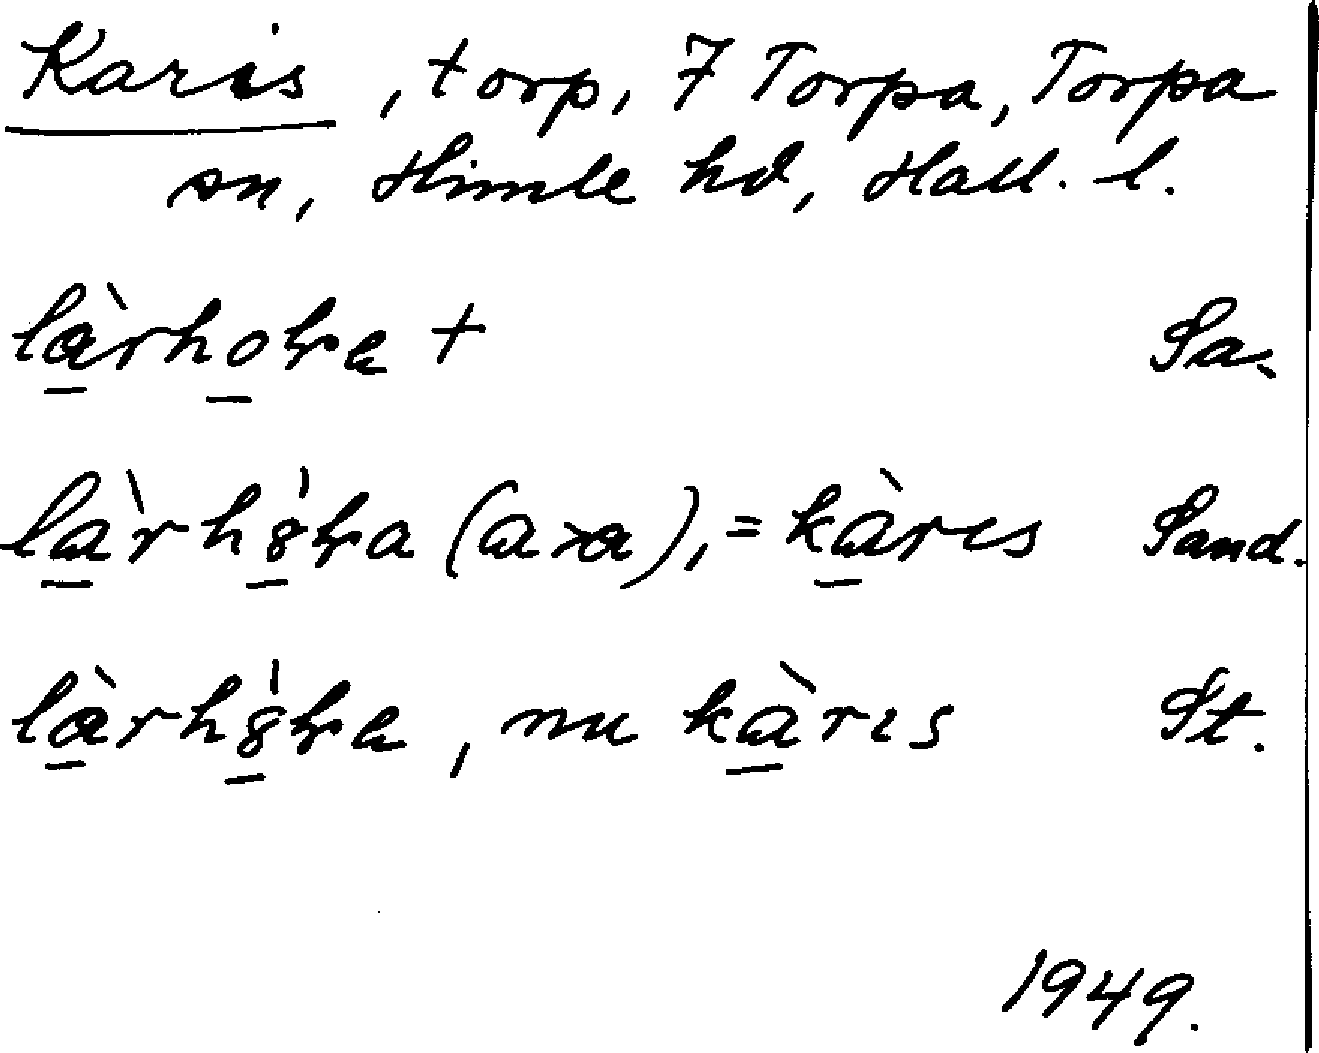 Karis, torp, 7 Torpa, Torpa
sn, Himle hd, Hall. l.
là̱rho̱ka + Sa.
là̱rhȣ̱̍ka (a>a), = kà̱rıs Sand.
là̱rhȣ̱̍ka, nu kà̱rıs St.
1949.